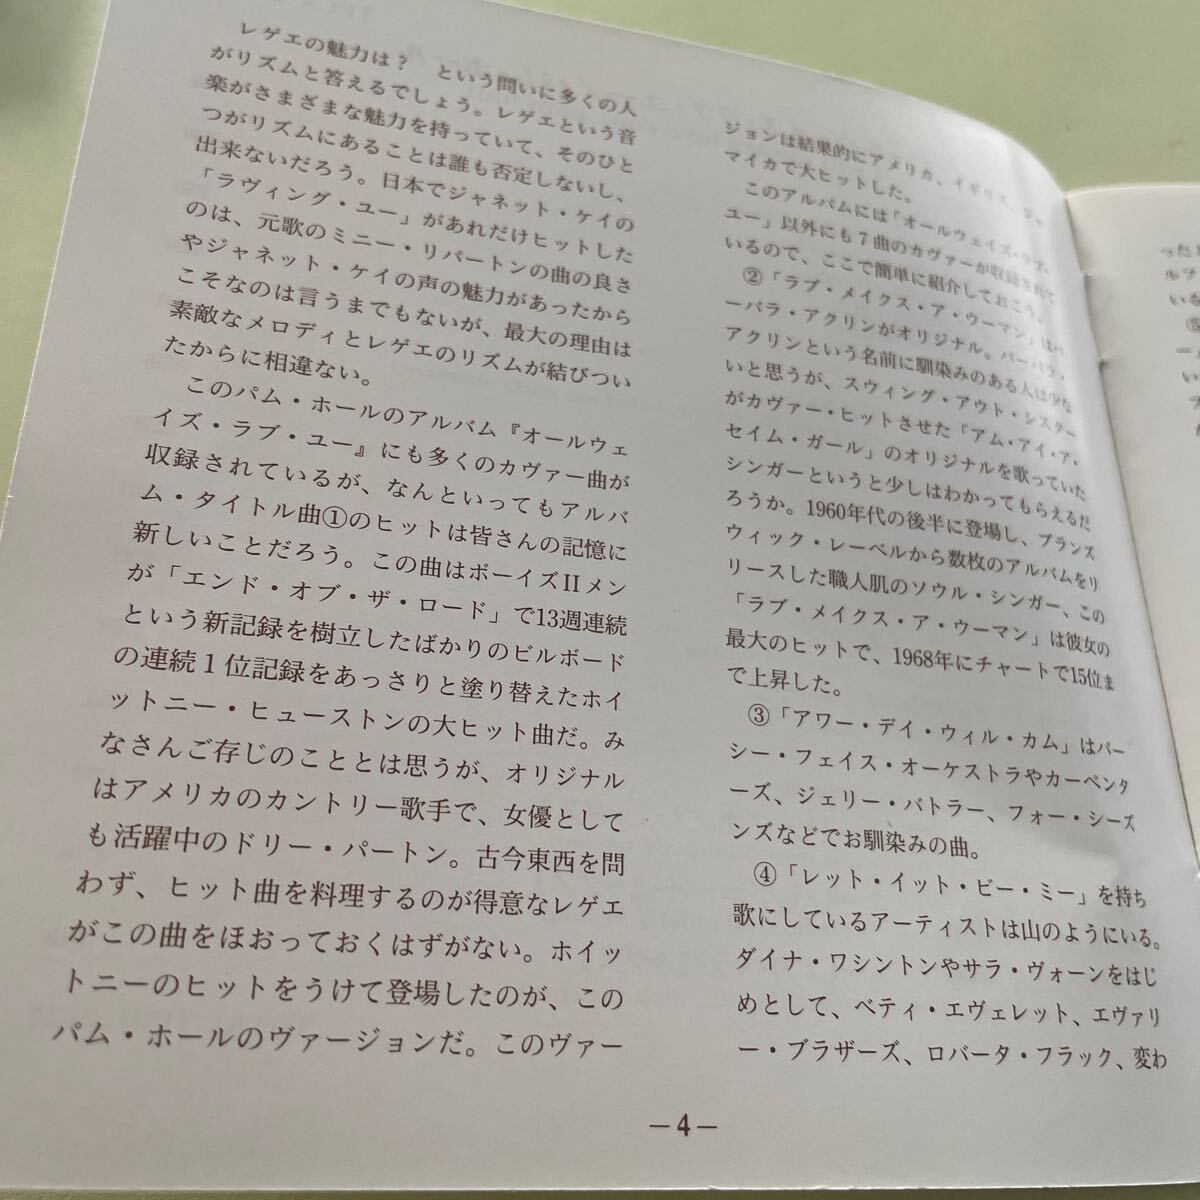 レゲエの魅力は？　という問いに多くの人
がリズムと答えるでしょう。レゲエという音
楽がさまざまな魅力を持っていて、そのひと
つがリズムにあることは誰も否定しないし、
出来ないだろう。日本でジャネット・ケイの
「ラヴィング・ユー」があれだけヒットした
のは、元歌のミニー・リパートンの曲の良さ
やジャネット・ケイの声の魅力があったから
こそなのは言うまでもないが、最大の理由は
素敵なメロディとレゲエのリズムが結びつい
たからに相違ない。
このパム・ホールのアルバム『オールウェ
イズ・ラブ・ユー』にも多くのカヴァー曲が
収録されているが、なんといってもアルバ
ム・タイトル曲①のヒットは皆さんの記憶に
新しいことだろう。この曲はボーイズIIメン
が「エンド・オブ・ザ・ロード」で13週連続
という新記録を樹立したばかりのビルボード
の連続１位記録をあっさりと塗り替えたホイ
ットニー・ヒューストンの大ヒット曲だ。み
なさんご存じのこととは思うが、オリジナル
はアメリカのカントリー歌手で、女優として
も活躍中のドリー・パートン。古今東西を問
わず、ヒット曲を料理するのが得意なレゲエ
がこの曲をほおっておくはずがない。ホイッ
トニーのヒットをうけて登場したのが、この
パム・ホールのヴァージョンだ。このヴァー
ジョンは結果的にアメリカ、イギリス、ジャ
マイカで大ヒットした。
このアルバムには「オールウェイズ・ラブ・
ユー」以外にも７曲のカヴァーが収録されて
いるので、ここで簡単に紹介しておこう。
②「ラブ・メイクス・ア・ウーマン」はバ
ーバラ・アクリンがオリジナル。バーバラ・
アクリンという名前に馴染みのある人は少な
いと思うが、スウィング・アウト・シスター
がカヴァー・ヒットさせた「アム・アイ・ア・
セイム・ガール」のオリジナルを歌っていた
シンガーというと少しはわかってもらえるだ
ろうか。1960年代の後半に登場し、ブランズ
ウィック・レーベルから数枚のアルバムをリ
リースした職人肌のソウル・シンガー、この
「ラブ・メイクス・ア・ウーマン」は彼女の
最大のヒットで、1968年にチャートで15位ま
で上昇した。
③「アワー・デイ・ウィル・カム」はパー
シー・フェイス・オーケストラやカーペンタ
ーズ、ジェリー・バトラー、フォー・シーズ
ンズなどでお馴染みの曲。
④「レット・イット・ビー・ミー」を持ち
歌にしているアーティストは山のようにいる。
ダイナ・ワシントンやサラ・ヴォーンをはじ
めとして、ベティ・エヴェレット、エヴァリ
ー・ブラザーズ、ロバータ・フラック、変わ
―4―